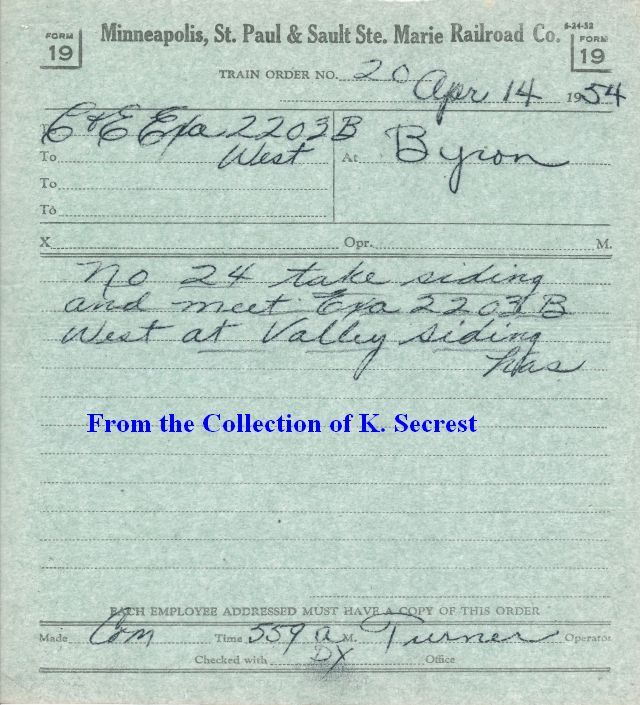 FORM 19 Minneapolis, St. Paul & Sault Ste. Marie Railroad Co. 6-24-52 FORM 19
TRAIN ORDER NO. 20
Apr 14 1954
C&E Exa 2203 B
To West At Byron
To
To
X Opr. M.
No 24 take siding
and meet Exa 2203 B
West at Valley siding
has
From the Collection of K. Secrest
EACH EMPLOYEE ADDRESSED MUST HAVE A COPY OF THIS ORDER
Made Com Time 559 a M. Turner Operator
Checked with DX Office